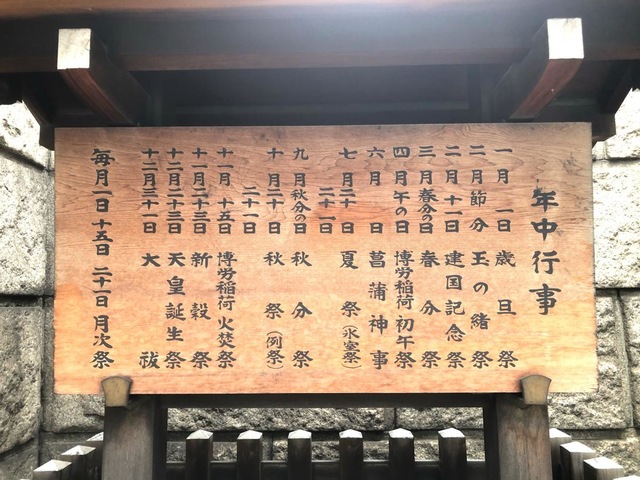 年中行事
一月一日 歳旦祭
二月節分 玉の緒祭
二月十一日 建国記念祭
三月春分の日 春分祭
四月午の日 博労稲荷初午祭
六月 日 菖蒲神事
七月二十日 夏祭(氷室祭)
二十一日
九月秋分の日 秋分祭
十月二十日 秋祭(例祭)
二十一日
十一月十五日 博労稲荷火焚祭
十一月二十三日 新穀祭
十二月二十三日 天皇誕生祭
十二月三十一日 大祓
毎月一日 十五日 二十一日 月次祭